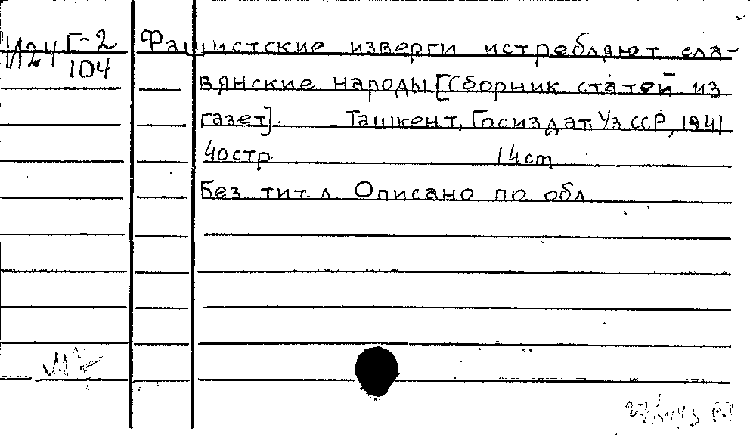 И24 Г-2
104
Фашистские изверги истребляют сла-
вянские народы [Сборник статей из
газет]. Ташкент, Госиздат УзССР, 1941
40стр 14cm
Без тит л Описано по обл